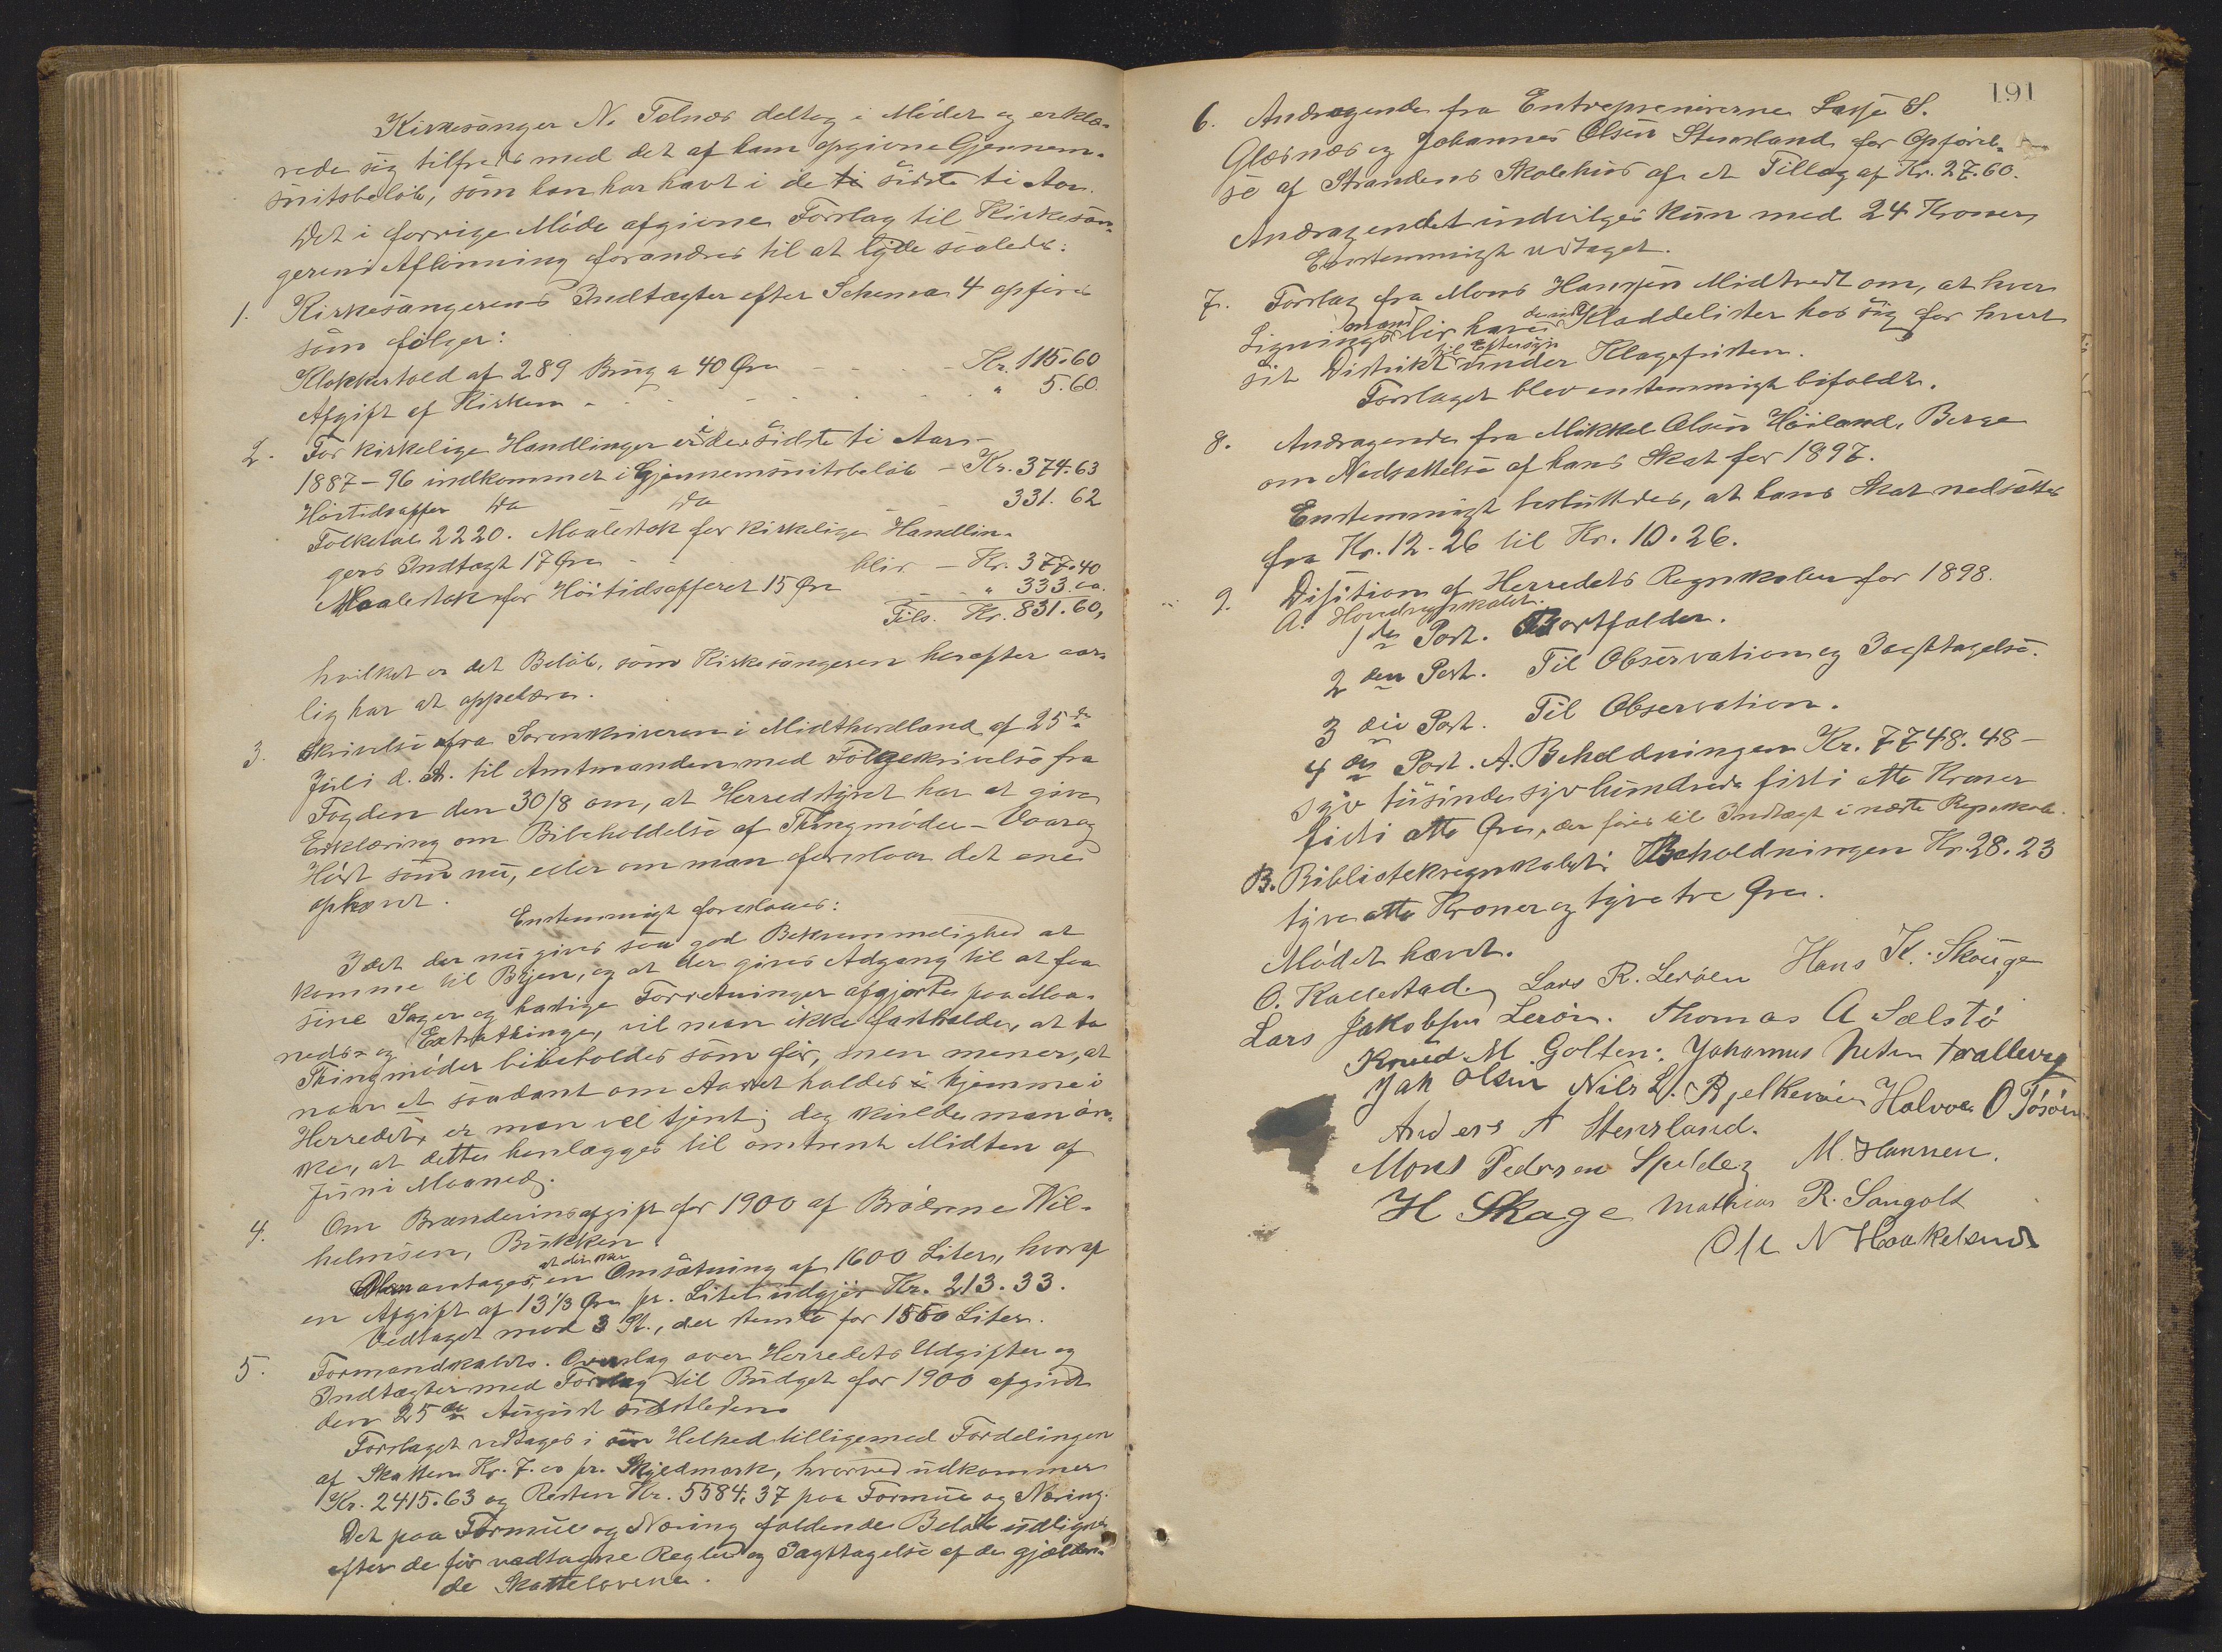 Kirkesanger N. Telnes deltog i Mödet og erklæ-
rede sig tilfreds med det af ham opgivne Gjennem-
snitsbelöb, som han har havt i de ti sidste ti Aar.
Det i forrige Möde afgivne Forslag til Kirkesan-
gerens Aflönning forandres til at lyde saaledes:
1. Kirkesangerens Indtægter efter Schema 4 opföres
som fölger:
Klokkertold af 289 Brug a 40 Øre - - - - Kr. 115.60
Afgift af Kirken - - - - - " 5.60
2. For kirkelige Handlinger er i de sidste ti Aar -
1887-96 indkommet i Gjennemsnitsbelöb - Kr. 374.63
Höitidsoffer Do Do 331.62
Folketal 2220. Maalestok for kirkelige Handlin-
gers Indtægt 17 Øre - bliv - Kr. 377.40
Maalestok for Höitidsofferet 15 Øre - - " 333.00
Tils. Kr. 831.60,
hvilket er det Belöb, som Kirkesangeren herefter aar-
lig har at oppebære.
3. Skrivelse fra Sorenskriveren i Midthordland af 25de
Juli d. A. til Amtmanden med Fölgeskrivelse fra
Fogden den 30/8 om, at Herredstyret har at give
Erklæring om Bibeholdelse af Thingmöder - Vaar og
Höst som nu, eller om man foreslaar det ene
ophævet.
Enstemmigt foreslaaes:
Idet der nu gives saa god Bekvemmelighed at
komme til Byen, og at der gives Adgang til at faa
sine Sager og hastige Forretninger afgjorte paa Maa-
neds- og Extrathinge, vil man ikke fastholde, at to
Thingmöder bibeholdes som för, men mener, at
naar et saadant om Aaret holdes i hjemme i
Herredet, er man vel tjent; dog skulde man öns-
ke, at dette henlægges til omtrent Midten af
Juni Maaned.
4. Om Brændevinsafgift for 1900 af Brödrene Wil-
helmsen, Bukken.
at der sker
Man antages, en Omsætning af 1600 Liter, hvoraf
en Afgift af 13 1/3 Øre pr. Liter udgjör Kr. 213.33.
Vedtaget mod 3 St., der stemte for 1550 Liter.
5. Formandskabets Overslag over Herredets Udgifter og
Indtægter med Forslag til Budget for 1900 afgivet
den 25de August sidstleden.
Forslaget vedtages i sin Helhed tilligemed Fordelingen
af Skatten Kr. 7.00 pr. Skyldmark, hvorved udkommer
Kr. 2415.63 og Resten Kr. 5584.37 paa Formue og Næring.
Det paa Formue og Næring faldende Belöb udlignes
efter de för vedtagne Regler og Iagttagelse af de gjælden-
de Skattelovene.
191
6. Andragende fra Entreprenörerne Lasse S.
Glæsnæs og Johannes Olsen Stensland for Opförel-
se af Strandens Skolehus af et Tillæg af Kr. 27.60.
Andragendet indvilges kun med 24 Kroner,
Enstemmigt vedtaget.
7. Forslag fra Mons Hanssen Midtvedt om, at hver
Ligningsmand bör have de inde Kladdelister hos sig for hvert
sit Distrikt til Eftersyn under Klagefristen.
Forslaget blev enstemmigt bifaldt.
8. Andragende fra Mikkel Olsen Höiland, Berge
om Nedsættelse af hans Skat for 1897.
Enstemmigt besluttedes, at hans Skat nedsættes
fra Kr. 12.26 til Kr. 10.26.
9. Disition af Herredets Regnskaber for 1898.
A. Hovedregnskabet.
1ste Post. Bortfalder.
2den Post. Til Observation og Iagttagelse.
3die Post. Til Observation.
4de Post. A. Beholdningen Kr. 7748.48 -
syv tusinde syv hundrede firti otte Kroner
firti otte Øre, der föres til Indtægt i næste Regnskab.
B. Bibliotekregnskabet: Beholdningen Kr. 28.23
tyve otte Kroner og tyve tre Øre.
Mödet hævet.
O. Kallestad. Lars R. Leröen Hans K. Skouge
Lars Jakobsen Leröen. Thomas A Sælstö
Knud M. Golten. Johannes
Jak Olsen Nils L. Bjelkeröen Halvor O Tösöen
Anders A Stensland.
Mons Pedersen Spilde M. Hanssen.
H Skage Mathias R. Sangolt
Ole N Haakelsund